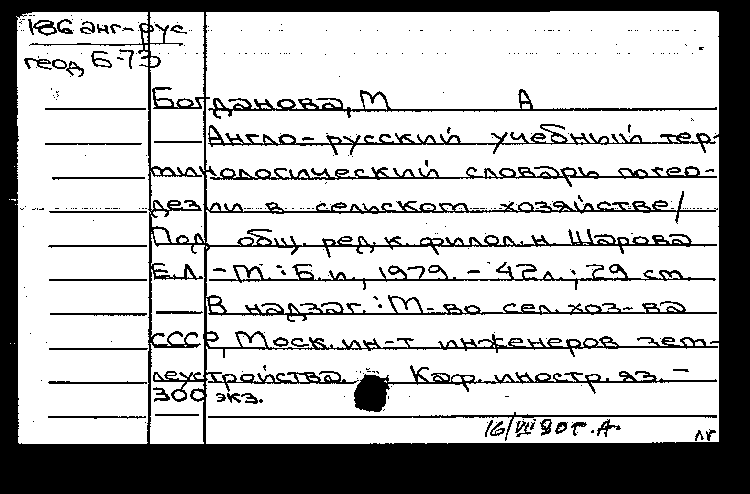 186 анг-рус
геод Б-73
Богданова, М А
Англо-русский учебный тер-
минологический словарь по гео-
дезии в сельском хозяйстве /
Под общ. ред. к. филол. н. Шарова
Е.Л. - М. : Б.и., 1979. - 42 л. ; 29 см.
В надзаг. : М-во сел. хоз-ва
СССР, Моск. ин-т инженеров зем-
леустройства. Каф. иностр. яз. -
300 экз.
16/VII 80 г. А.